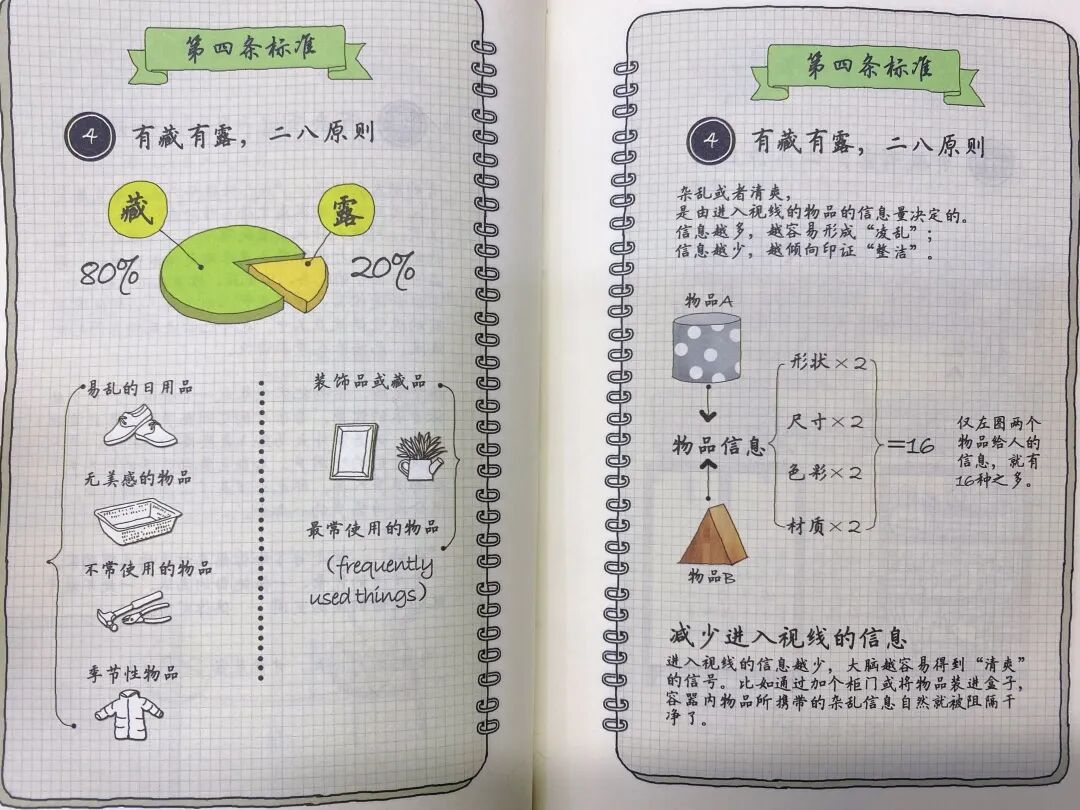 第四条标准
4 有藏有露，二八原则
藏
露
80%
20%
易乱的日用品
无美感的物品
不常使用的物品
季节性物品
装饰品或藏品
最常使用的物品
(frequently
used things)
第四条标准
4 有藏有露，二八原则
杂乱或者清爽，
是由进入视线的物品的信息量决定的。
信息越多，越容易形成“凌乱”；
信息越少，越倾向印证“整洁”。
物品A
物品信息
物品B
形状×2
尺寸×2
色彩×2
材质×2
=16
仅左图两个
物品给人的
信息，就有
16种之多。
减少进入视线的信息
进入视线的信息越少，大脑越容易得到“清爽”
的信号。比如通过加个柜门或将物品装进盒子，
容器内物品所携带的杂乱信息自然就被阻隔干
净了。